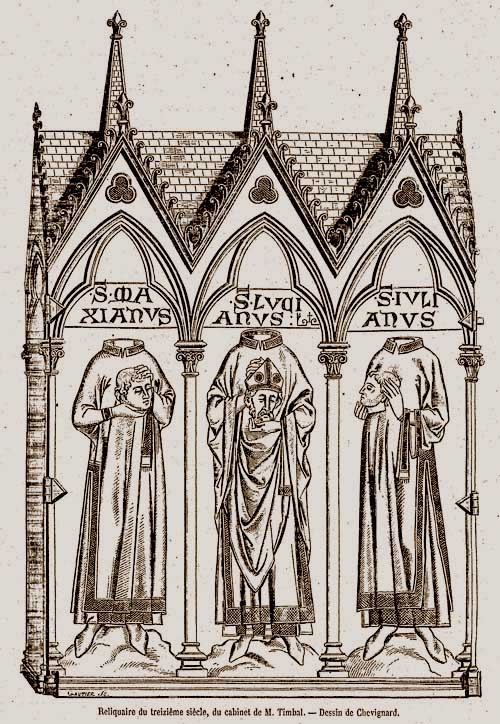 S·MA
XIANVS
S·LVCI
ANVS:
S·IVLI
ANVS
GAUTIER
Reliquaire du treizième siècle, du cabinet de M. Timbal. — Dessin de Chevignard.